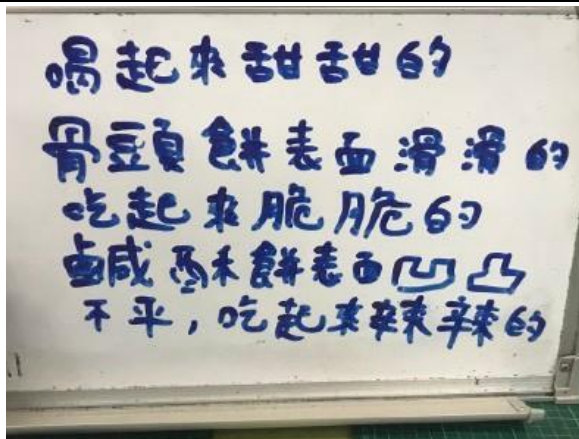 喝起來甜甜的
骨頭餅表面滑滑的
吃起來脆脆的
鹹酥餅表面凹凸
不平,吃起來辣辣的